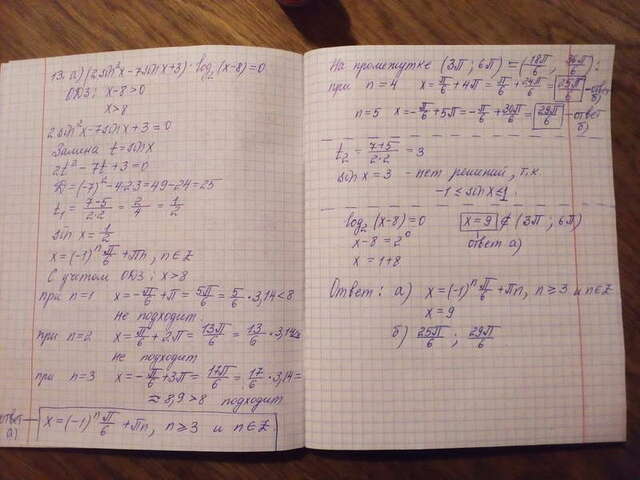 13. а) (2sin²x-7sinx+3)·log₂(x-8)=0
ОДЗ: x-8>0
x>8
2sin²x-7sinx+3=0
Замена t=sinx
2t²-7t+3=0
D=(-7)²-4·2·3=49-24=25
t₁=(7-5)/(2·2)=2/4=1/2
sin x=1/2
x=(-1)ⁿπ/6+πn, n∈Z
С учетом ОДЗ: x>8
при n=1 x=-π/6+π=5π/6=5/6·3,14<8
не подходит
при n=2 x=π/6+2π=13π/6=13/6·3,14<8
не подходит
при n=3 x=-π/6+3π=17π/6=17/6·3,14=
≈8,9>8 подходит
ответ а) x=(-1)ⁿπ/6+πn, n≥3 и n∈Z
На промежутке (3π; 6π)=(18π/6; 36π/6):
при n=4 x=π/6+4π=π/6+24π/6=25π/6 -ответ б)
n=5 x=-π/6+5π=-π/6+30π/6=29π/6 -ответ б)
t₂=(7+5)/(2·2)=3
sinx=3 -нет решений, т.к
-1≤sinx≤1
log₂(x-8)=0 x=9∉(3π; 6π)
x-8=2⁰ ответ а)
x=1+8
Ответ: а) x=(-1)ⁿπ/6+πn, n≥3 и n∈Z
x=9
б) 25π/6; 29π/6